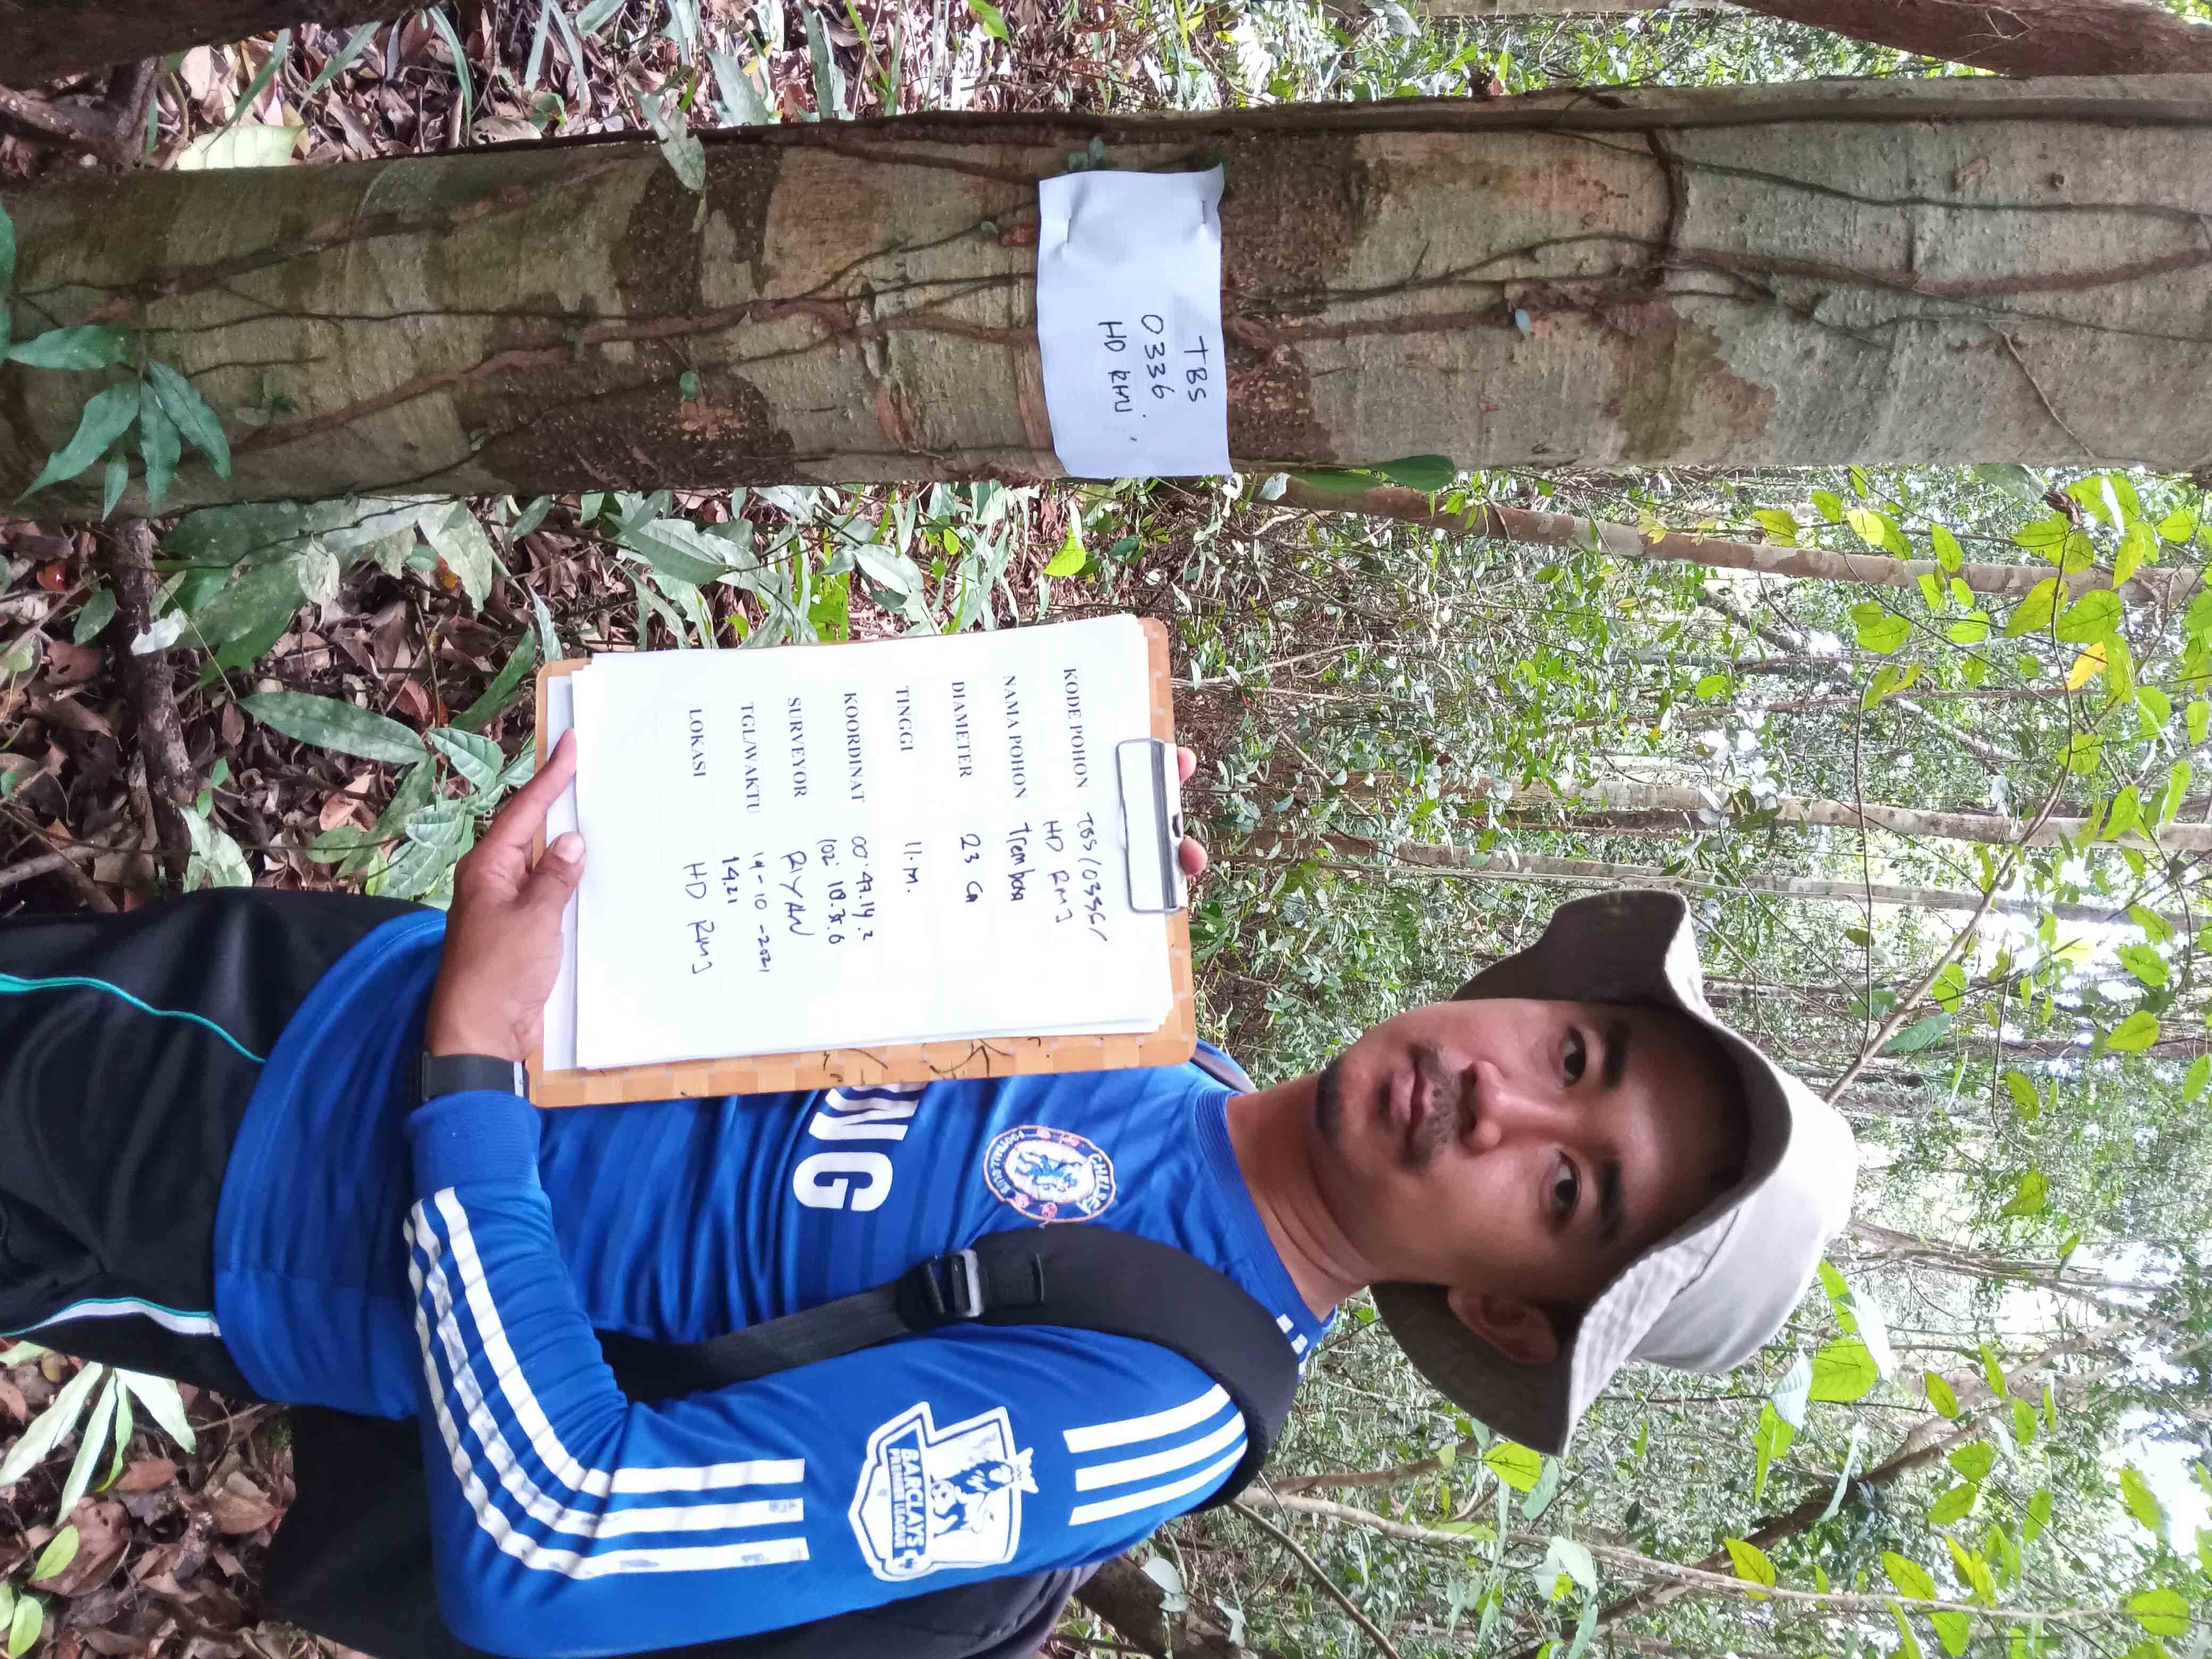 TBS
0336
HD RMJ
KODE POHON TBS/0336/
HD RMJ
NAMA POHON Trembosa
DIAMETER 23 Cm
TINGGI 11.M.
KOORDINAT 00° 47.14.2
102° 18.35.6
SURVEYOR RIYAN
TGL/WAKTU 19-10-2021
14.21
LOKASI HD RMJ
CHELSEA
FOOTBALL CLUB
NG
BARCLAYS
PREMIER LEAGUE